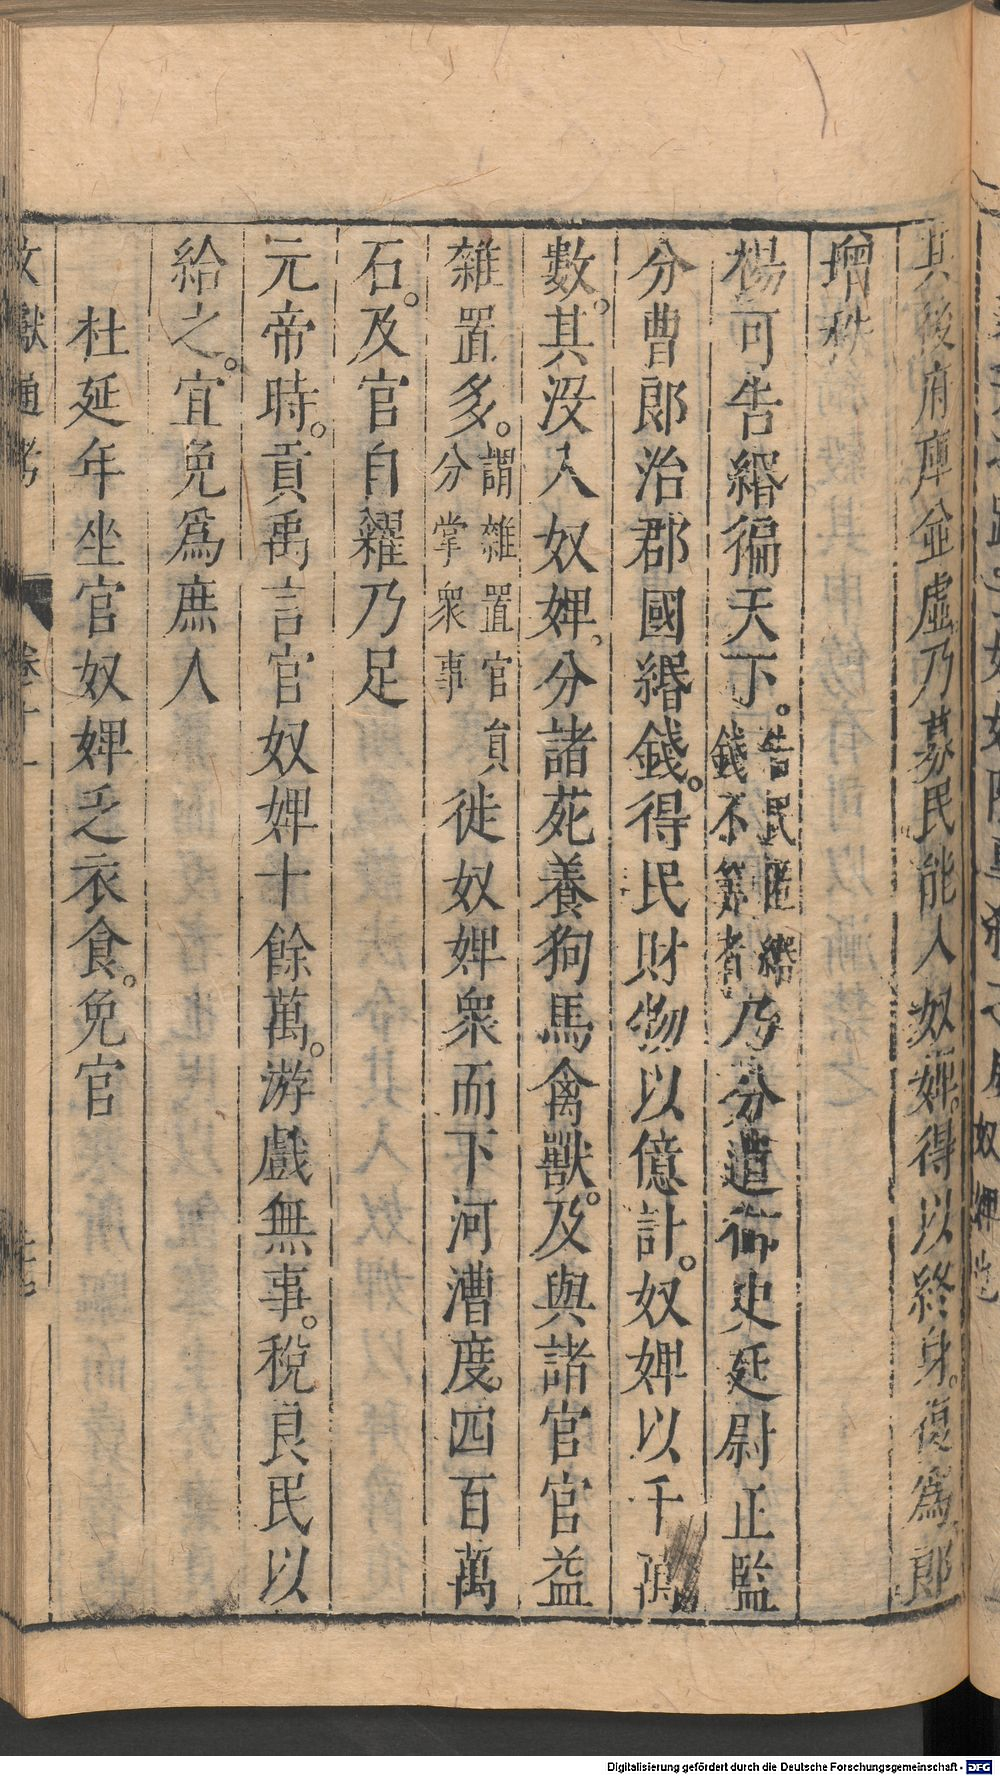 其後府庫並虛乃募民能入奴婢得以終身復爲郎
增秩
楊可告緡徧天下。告民匿緡錢不筭者乃分遣御史廷尉正監
分曹郎治郡國緡錢。得民財物以億計。奴婢以千萬
數。其沒入奴婢。分諸苑養狗馬禽獸。及與諸官官益
雜置多。謂雜置官員分掌衆事徙奴婢衆而下河漕度。四百萬
石。及官自糴乃足
元帝時。貢禹言官奴婢十餘萬。游戲無事。稅良民以
給之。宜免爲庶人
杜延年坐官奴婢乏衣食。免官
文獻通考 卷十一
Digitalisierung gefördert durch die Deutsche Forschungsgemeinschaft - DFG